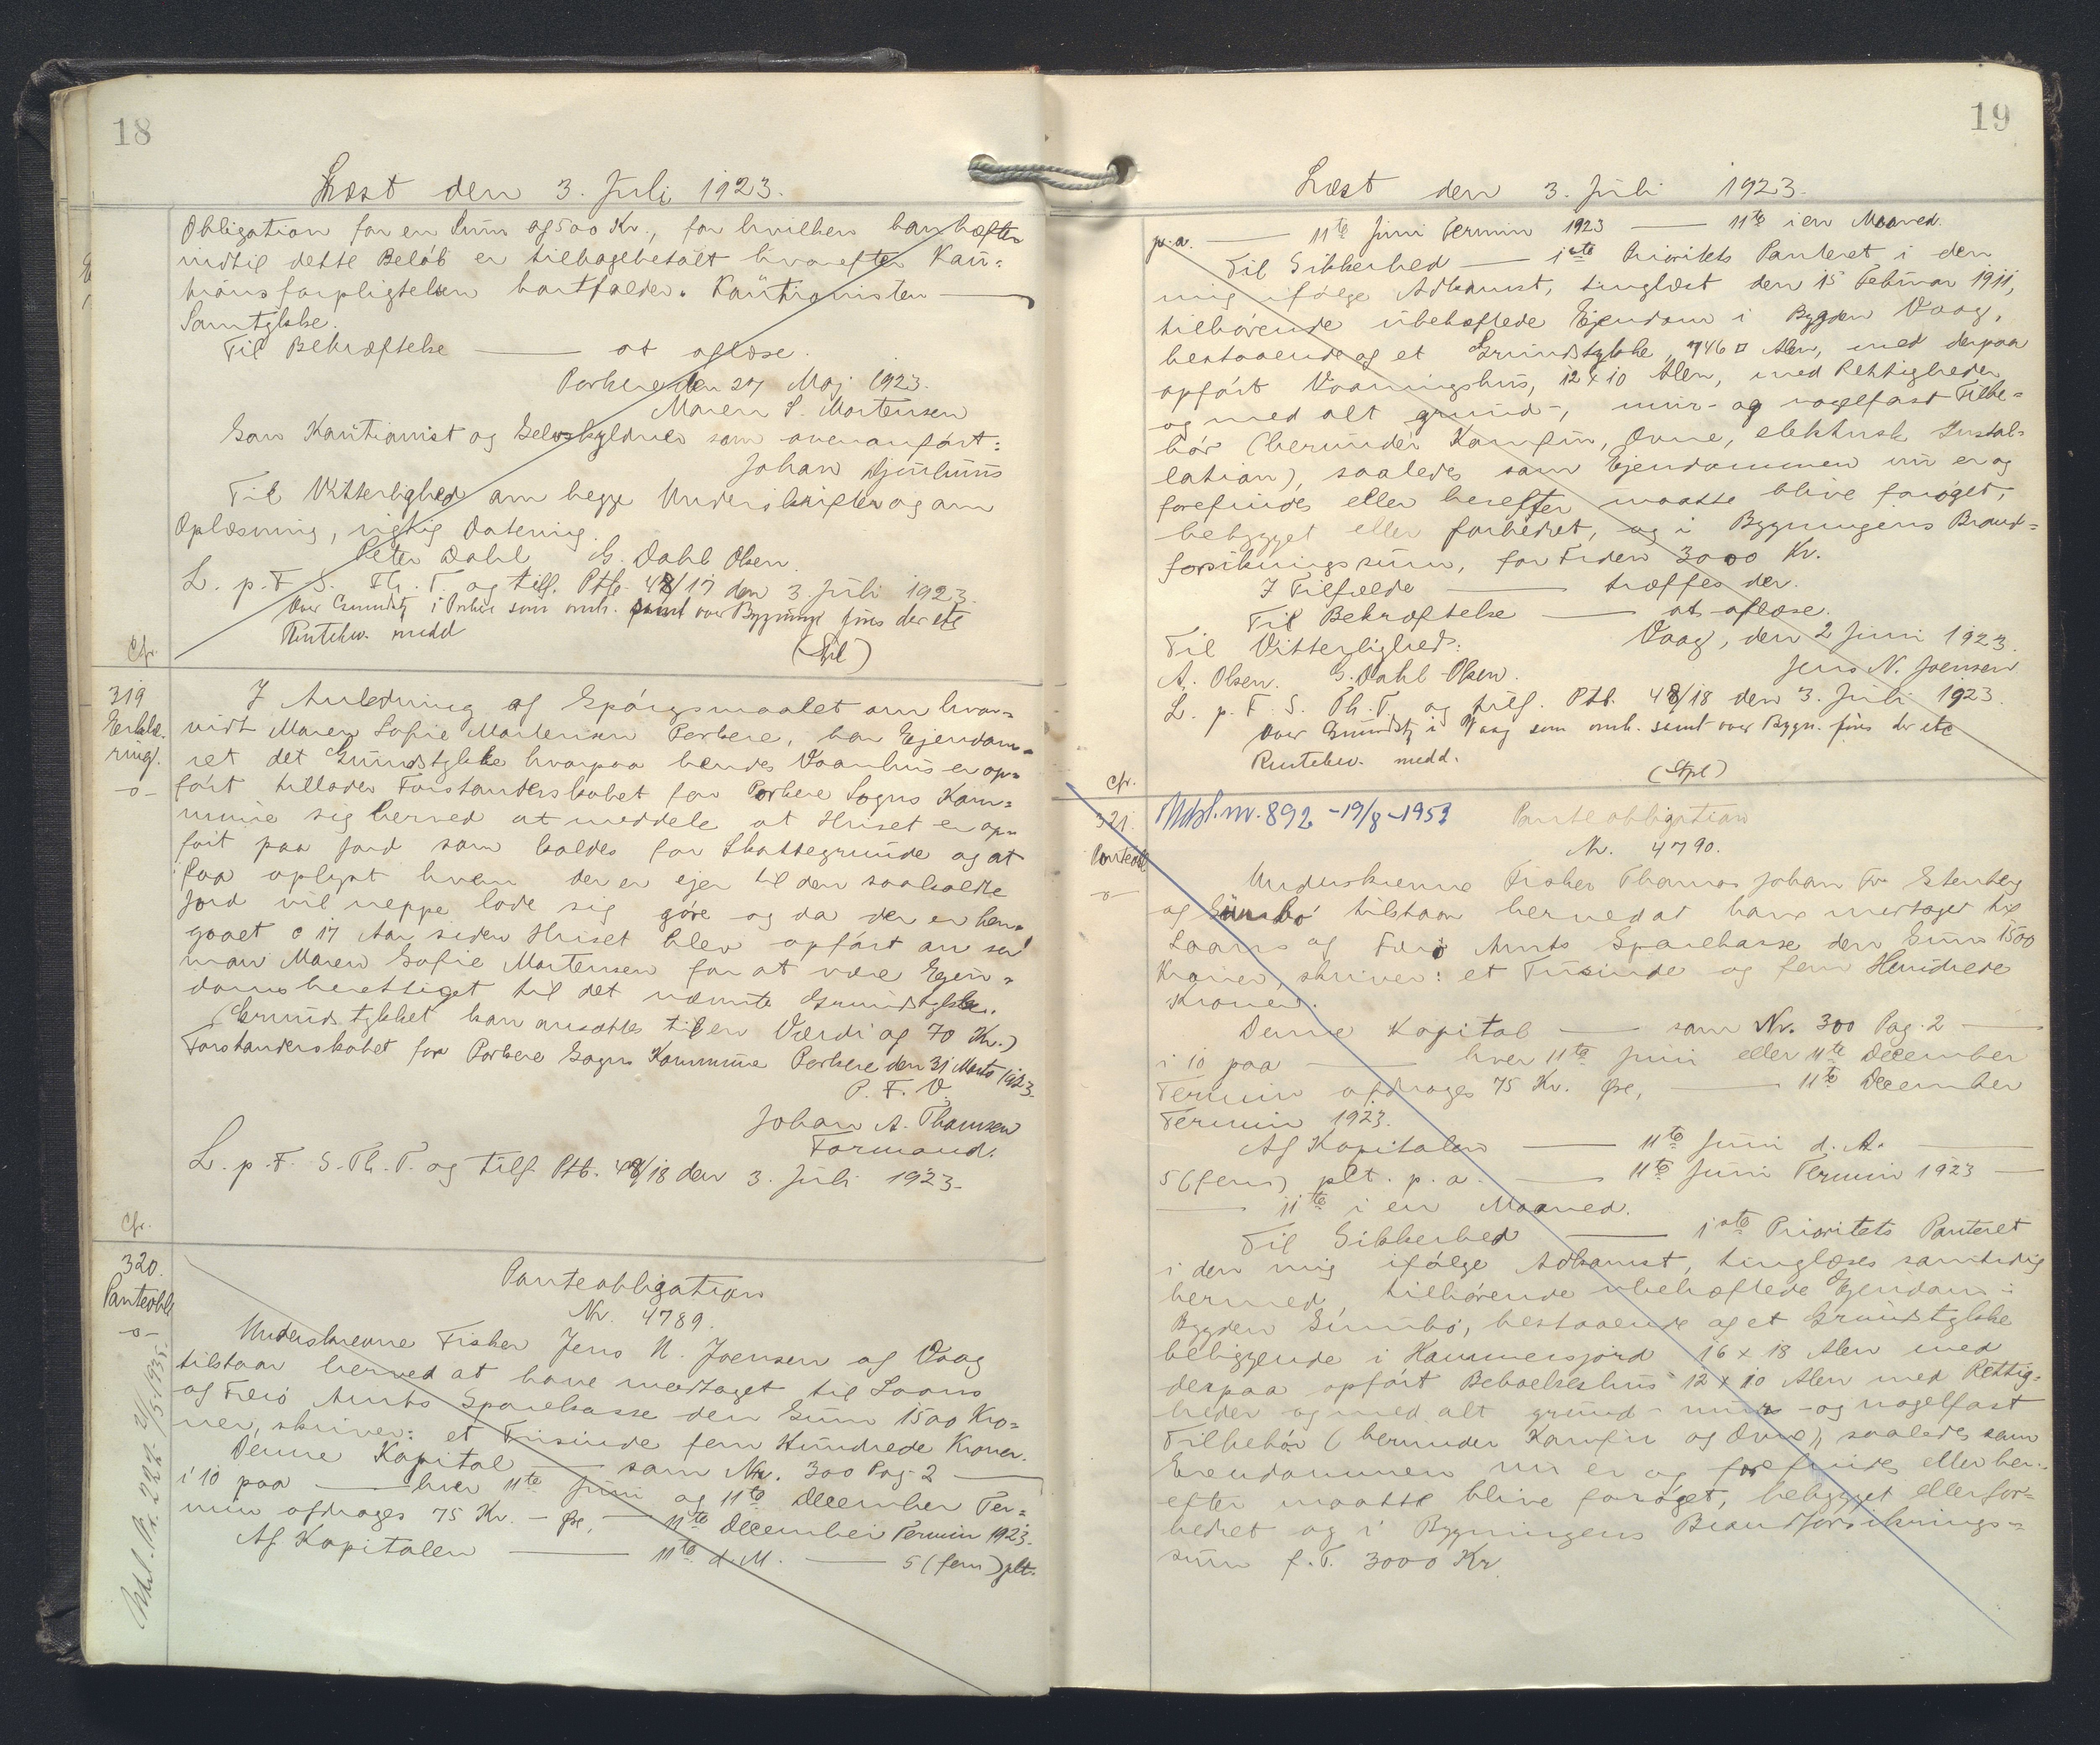 18
Læst den 3. Juli 1923.
Obligation for en Sum af 500 Kr., for hvilken han hæfter
indtil dette Beløb er tilbagebetalt hvorefter Kau=
tionsforpligtelsen bortfalder. Kautionisten —
Samtykke.
Til Bekræftelse — at aflæse.
Porkere den 27 Maj 1923.
Maren S. Mortensen
Som Kautionist og Selvskyldner som ovenanført:
Johan Djurhuus
Til Vitterlighed om begge Underskrifter og om
Oplæsning, rigtig Datering.
Peter Dahl G. Dahl Olsen.
L. p. F. S. Th. T. og tilf. Ptb. 48/17 den 3. Juli 1923.
Over Grundstk i Porkere som omh. samt over Bygninge fins der etc
Rentehv. medd
(Stpl)
Cfr.
319
Erklæ=
ring.
-o-
I Anledning af Spørgsmaalet om hvor=
vidt Maren Sofie Mortensen Porkere, har Ejendoms=
ret det Grundstykke hvorpaa hendes Vaanhus er op=
ført tillader Forstanderskabet for Porkere Sogns Kom=
mune sig herved at meddele at Huset er op=
ført paa Jord som kaldes for Skattegrunde og at
faa oplyst hvem der er ejer til den saakaldte
Jord vil neppe lade sig gøre og da der er hen=
gaaet o 17 Aar siden Huset blev opført anser
man Maren Sofie Mortensen for at være Ejen=
domsberettiget til det nævnte Grundstykke.
(Grundstykket kan ansættes til en Værdi af 70 Kr.)
Forstanderskabet for Porkere Sogns Kommune Porkere den 31 Marts 1923.
P. F. V.
Johan A. Thomsen
Formand.
L. p. F. S. Th. T. og tilf. Ptb. 48/18 den 3. Juli 1923.
Cfr.
320.
Panteobl
-o-
Udsl. Nr. 222. 21/5 1935.
Panteobligation
Nr. 4789.
Underskrevne Fisker Jens N. Joensen af Vaag
tilstaar herved at have modtaget til Laans
af Færø Amts Sparekasse den Sum 1500 Kro=
ner, skriver: et Tusinde fem Hundrede Kroner.
Denne Kapital — som Nr. 300 Pag. 2 —
i 10 paa — hver 11te Juni og 11te December Ter=
min afdrages 75 Kr. - Øre, — 11te December Termin 1923.
Af Kapitalen — 11te d. M. — 5 (fem) pct.
19
Læst den 3. Juli 1923.
p.a. — 11te Juni Termin 1923 — 11te i en Maaned.
Til Sikkerhed — 1ste Prioritets Panteret i den
mig ifølge Adkomst, tinglæst den 15 Februar 1911,
tilhørende ubehæftede Ejendom i Bygden Vaag,
bestaaende af et Grundstykke, 746 □ Alen, med derpaa
opført Vaaningshus, 12 x 10 Alen, med Rettigheder
og med alt grund-, mur- og nagelfast Tilbe=
hør (herunder Komfur, Ovne, elektrisk Instal=
lation), saaledes som Ejendommen nu er og
forefindes eller herefter maatte blive forøget,
bebygget eller forbedret, og i Bygningens Brand=
forsikringssum, for Tiden 3000 Kr.
I Tilfælde — træffes der.
Til Bekræftelse — at aflæse.
Vaag, den 2 Juni 1923.
Til Vitterlighed:
Jens N. Joensen
A. Olsen. G. Dahl-Olsen.
L. p. F. S. Th. T. og tilf. Ptb. 48/18 den 3. Juli 1923.
Over Grundstk i Vaag som omh. samt over Bygn. fins der etc
Rentehv. medd.
(Stpl)
Cfr.
321.
Panteobl
-o-
Udsl. nr. 892 - 19/8 - 1953
Panteobligation
Nr. 4790.
Underskrevne Fisker Thomas Johan Fr. Stenberg
af Sumbø tilstaar herved at have modtaget til
Laans af Færø Amts Sparekasse den Sum 1500
Kroner, skriver: et Tusinde og fem Hundrede
Kroner.
Denne Kapital — som Nr. 300 Pag. 2 —
i 10 paa — hver 11te Juni eller 11te December
Termin afdrages 75 Kr. Øre, — 11te December
Termin 1923.
Af Kapitalen — 11te Juni d. A. —
5 (fem) pct. p. a. — 11te Juni Termin 1923 —
— 11te i en Maaned.
Til Sikkerhed — 1ste Prioritets Panteret
i den mig ifølge Adkomst, tinglæses samtidig
hermed, tilhørende ubehæftede Ejendom i
Bygden Sumbø, bestaaende af et Grundstykke
beliggende i Hammersjord 16 x 18 Alen med
derpaa opført Beboelseshus 12 x 10 Alen med Rettig=
heder og med alt grund- mur- og nagelfast
Tilbehør (herunder Komfur og Ovne), saaledes som
Ejendommen nu er og forefindes eller her=
efter maatte blive forøget, bebygget eller for=
bedret og i Bygningens Brandforsikrings=
sum f. T. 3000 Kr.